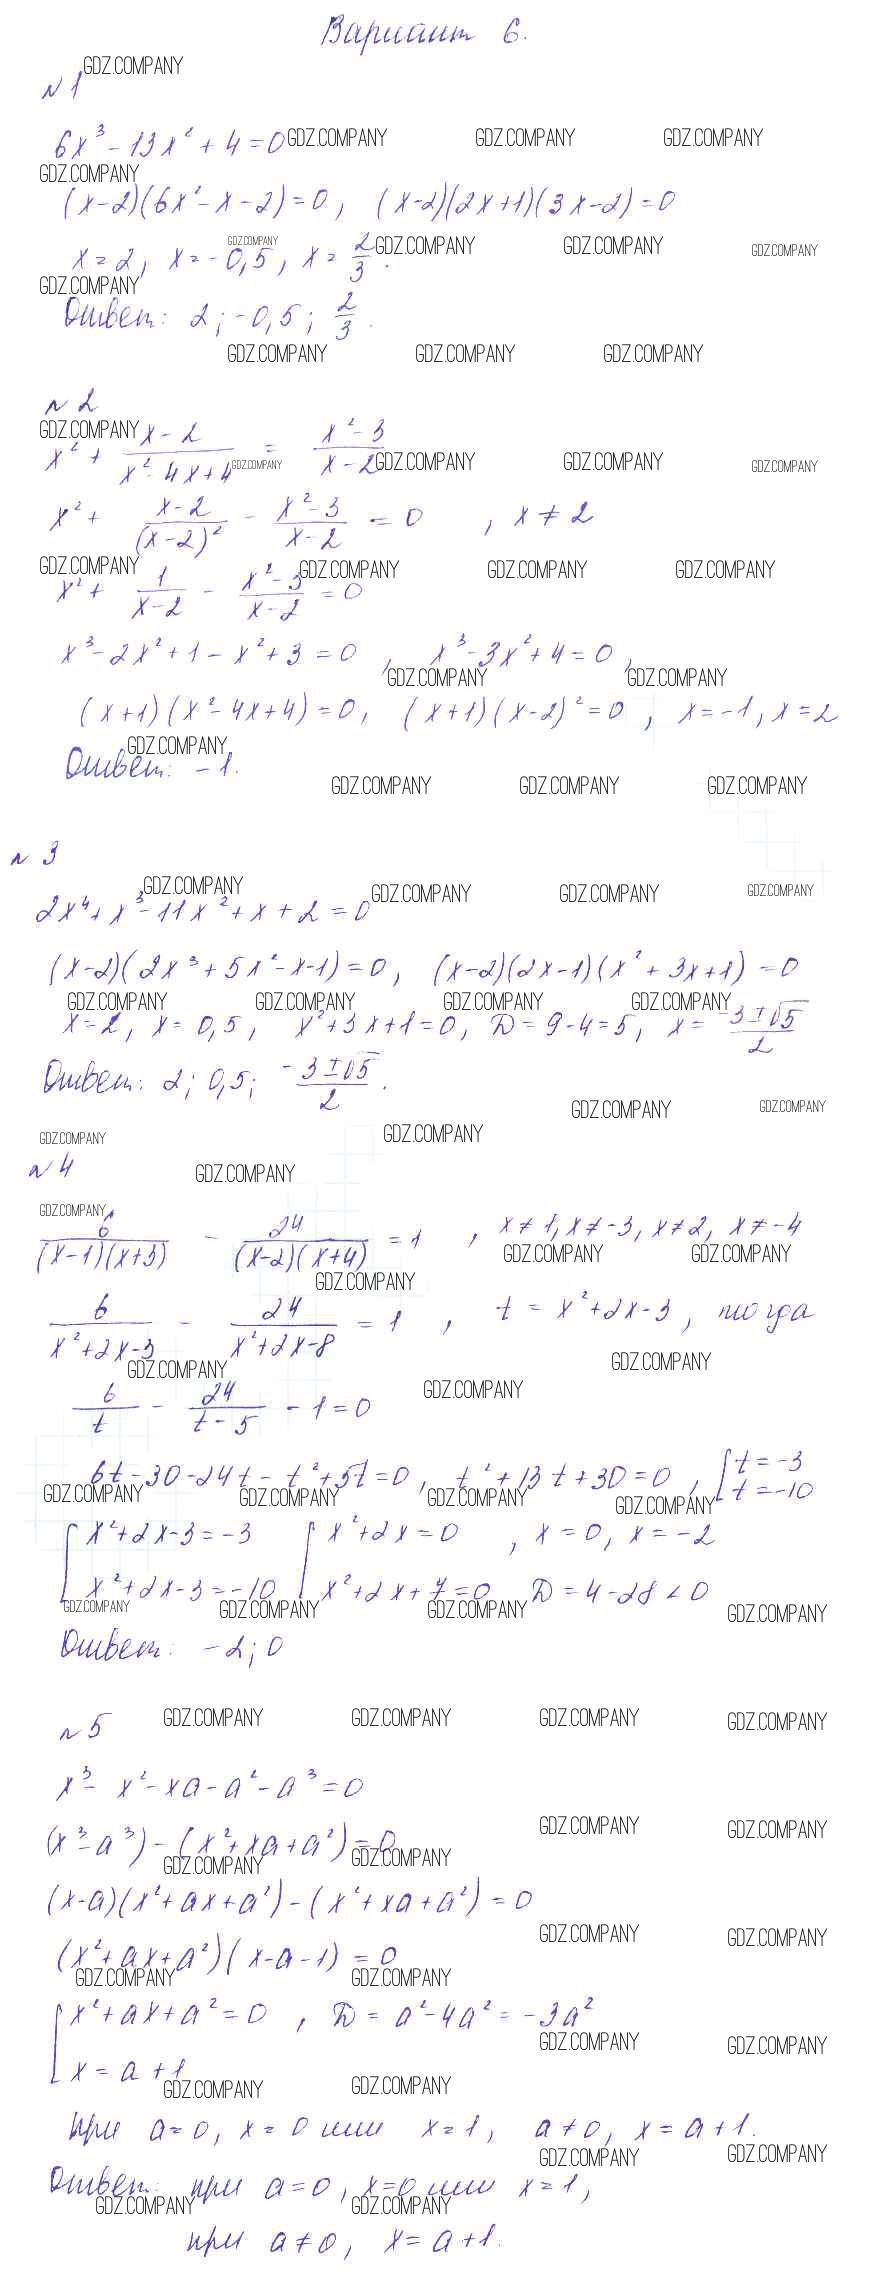 Вариант 6.
GDZ.COMPANY
№1
6x³ - 13x² + 4 = 0 GDZ.COMPANY GDZ.COMPANY GDZ.COMPANY
GDZ.COMPANY
(x-2)(6x² - x - 2) = 0, (x-2)(2x+1)(3x-2) = 0
x = 2, x = -0,5, x = 2/3. GDZ.COMPANY GDZ.COMPANY GDZ.COMPANY GDZ.COMPANY
GDZ.COMPANY
Ответ: 2; -0,5; 2/3.
GDZ.COMPANY GDZ.COMPANY GDZ.COMPANY
№2
GDZ.COMPANY
x² + (x-2)/(x²-4x+4) = (x²-3)/(x-2) GDZ.COMPANY GDZ.COMPANY GDZ.COMPANY GDZ.COMPANY
x² + (x-2)/(x-2)² - (x²-3)/(x-2) = 0, x ≠ 2
GDZ.COMPANY GDZ.COMPANY GDZ.COMPANY GDZ.COMPANY
x² + 1/(x-2) - (x²-3)/(x-2) = 0
x³ - 2x² + 1 - x² + 3 = 0, x³ - 3x² + 4 = 0,
GDZ.COMPANY GDZ.COMPANY
(x+1)(x²-4x+4) = 0, (x+1)(x-2)² = 0, x = -1, x = 2
GDZ.COMPANY
Ответ: -1.
GDZ.COMPANY GDZ.COMPANY GDZ.COMPANY
№3
GDZ.COMPANY GDZ.COMPANY GDZ.COMPANY GDZ.COMPANY
2x⁴ + x³ - 11x² + x + 2 = 0
(x-2)(2x³ + 5x² - x - 1) = 0, (x-2)(2x-1)(x² + 3x + 1) = 0
GDZ.COMPANY GDZ.COMPANY GDZ.COMPANY GDZ.COMPANY
x = 2, x = 0,5, x² + 3x + 1 = 0, D = 9 - 4 = 5, x = (-3±√5)/2
Ответ: 2; 0,5; (-3±√5)/2.
GDZ.COMPANY GDZ.COMPANY
GDZ.COMPANY GDZ.COMPANY
№4
GDZ.COMPANY
GDZ.COMPANY
6/((x-1)(x+3)) - 24/((x-2)(x+4)) = 1, x ≠ 1, x ≠ -3, x ≠ 2, x ≠ -4
GDZ.COMPANY GDZ.COMPANY
GDZ.COMPANY
6/(x²+2x-3) - 24/(x²+2x-8) = 1, t = x² + 2x - 3, тогда
GDZ.COMPANY GDZ.COMPANY
GDZ.COMPANY
6/t - 24/(t-5) - 1 = 0
6t - 30 - 24t - t² + 5t = 0, t² + 13t + 30 = 0, [t = -3
t = -10
GDZ.COMPANY GDZ.COMPANY GDZ.COMPANY GDZ.COMPANY
[x² + 2x - 3 = -3 [x² + 2x = 0, x = 0, x = -2
x² + 2x - 3 = -10 x² + 2x + 7 = 0 D = 4 - 28 < 0
GDZ.COMPANY GDZ.COMPANY GDZ.COMPANY GDZ.COMPANY
Ответ: -2; 0
GDZ.COMPANY GDZ.COMPANY GDZ.COMPANY GDZ.COMPANY
№5
x³ - x² - xa - a² - a³ = 0
GDZ.COMPANY GDZ.COMPANY
(x³ - a³) - (x² + xa + a²) = 0
GDZ.COMPANY GDZ.COMPANY
(x-a)(x² + ax + a²) - (x² + xa + a²) = 0
GDZ.COMPANY GDZ.COMPANY
(x² + ax + a²)(x - a - 1) = 0
GDZ.COMPANY GDZ.COMPANY
[x² + ax + a² = 0, D = a² - 4a² = -3a²
GDZ.COMPANY GDZ.COMPANY
x = a + 1
GDZ.COMPANY GDZ.COMPANY
при a = 0, x = 0 или x = 1, a ≠ 0, x = a + 1.
GDZ.COMPANY GDZ.COMPANY
Ответ: при a = 0, x = 0 или x = 1,
GDZ.COMPANY GDZ.COMPANY
при a ≠ 0, x = a + 1.